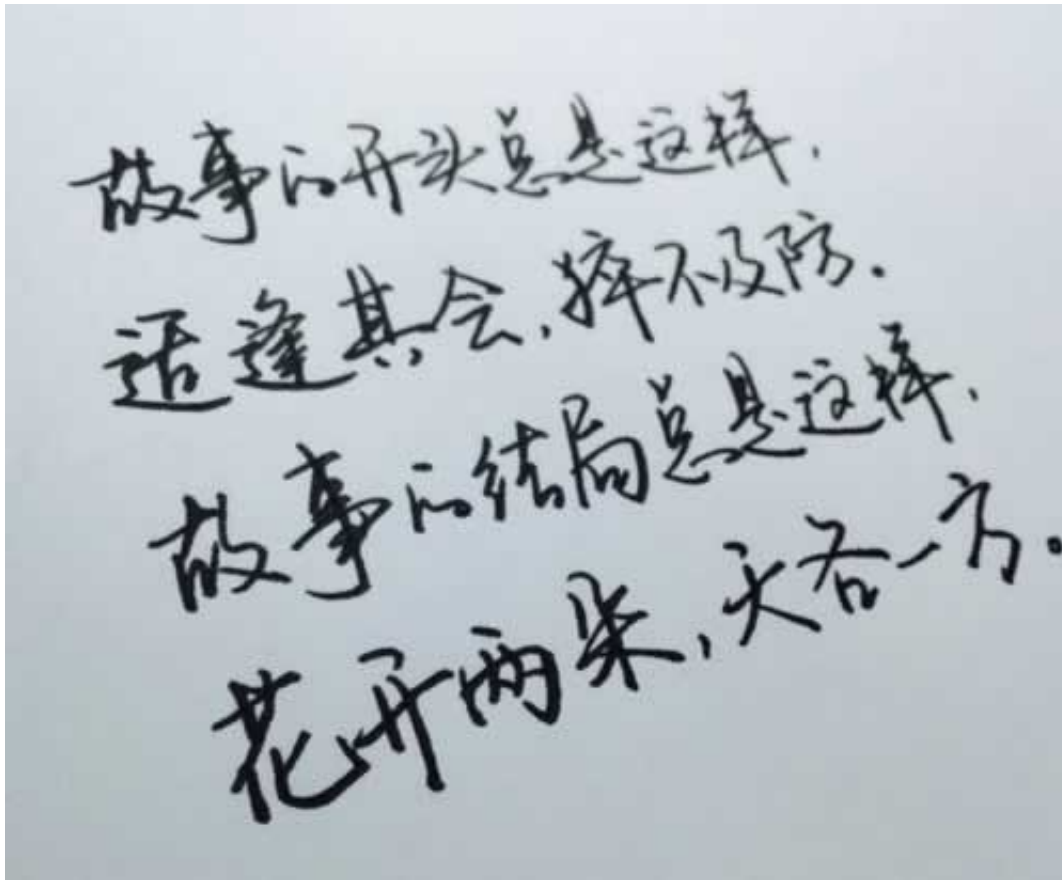 故事的开头总是这样,
适逢其会,猝不及防.
故事的结局总是这样,
花开两朵,天各一方。